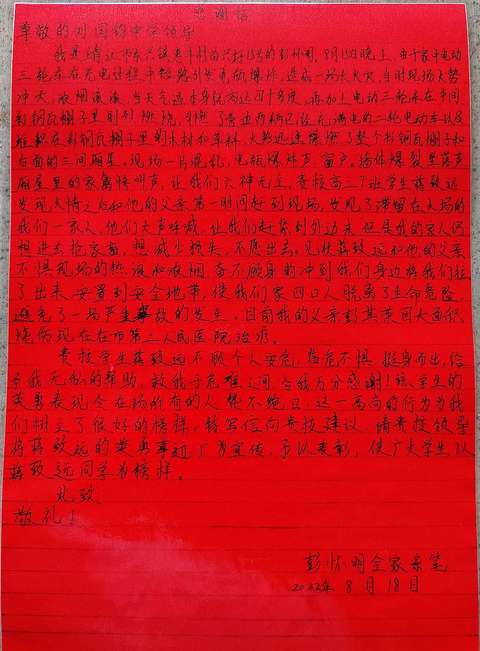 感谢信
尊敬的刘国钧中学领导
我是靖江市东兴镇惠丰村苗兴圩15号的彭怀明，8月15日晚上，由于家中电动
三轮车在充电过程中短路引发电瓶爆炸，造成一场大火灾，当时现场火势
冲天，浓烟滚滚，当天气温本身就高达41度，再加上电动三轮车在中间
彩钢瓦棚子里时刻燃烧，引燃了旁边两辆已经充满电的二轮电动车以及
堆积在彩钢瓦棚子里的木材和草料，大火迅速爆燃了整个彩钢瓦棚子和
后面的三间厢屋。现场一片混乱，电瓶爆炸声，窗户，墙体爆裂坠落声
厢屋里的家禽惨叫声，让我们六神无主，贵校高二7班学生蒋致远
发现火情之后和他的父亲第一时间赶到现场，发现了滞留在火场的
我们一家人，他们大声呼喊，让我们赶紧到外边来，但是我的家人仍
想进去抢家畜，想减少损失，不愿出去。见状蒋致远和他的父亲
不惧现场的热浪和浓烟，奋不顾身的冲到我们身边将我们拉
了出来，安置到安全地带，使我们家四口人脱离了生命危险，
避免了一场严重事故的发生，目前我的父亲彭其荣因大面积
烧伤现在在市第二人民医院治疗。
贵校学生蒋致远不顾个人安危，临危不惧，挺身而出，给
予我无私的帮助，救我于危难之间，令我万分感谢！该学生的
英勇表现令在场所有的人赞不绝口，这一高尚的行为为我
们树立了很好的榜样，特写信向贵校建议，请贵校领导
将蒋致远的英勇事迹，广为宣传，予以表彰，使广大学生以
蒋致远同学为榜样。
此致
敬礼！
彭怀明全家亲笔
2022年8月18日